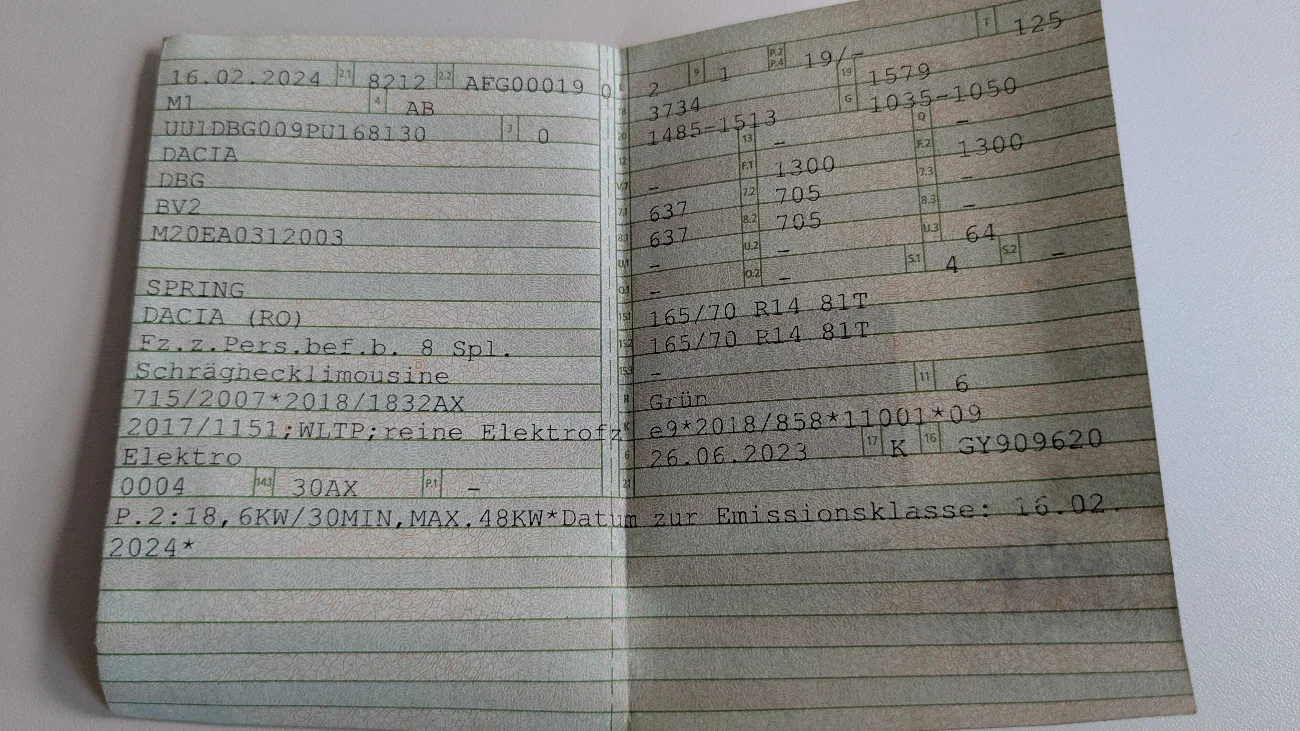 16.02.2024 2.1 8212 2.2 AFG00019 0
M1 4 AB
UU1DBG009PU168130 3 0
DACIA
DBG
BV2
M20EA0312003
SPRING
DACIA (RO)
Fz.z.Pers.bef.b. 8 Spl.
Schräghecklimousine
715/2007*2018/1832AX
2017/1151;WLTP;reine Elektrofz
Elektro
0004 14.1 30AX P.1 –
2 9 1 P.2 P.4 19/– T 125
18 3734 19 1579
20 1485-1513 G 1035-1050
12 – 13 – Q –
V.7 – F.1 1300 F.2 1300
7.1 637 7.2 705 7.3 –
8.1 637 8.2 705 8.3 –
U.1 – U.2 – U.3 64
O.1 – O.2 – S.1 4 S.2 –
15.1 165/70 R14 81T
15.2 165/70 R14 81T
15.3 –
R Grün 11 6
K e9*2018/858*11001*09
6 26.06.2023 17 K 16 GY909620
21
P.2:18,6KW/30MIN,MAX.48KW*Datum zur Emissionsklasse: 16.02.
2024*